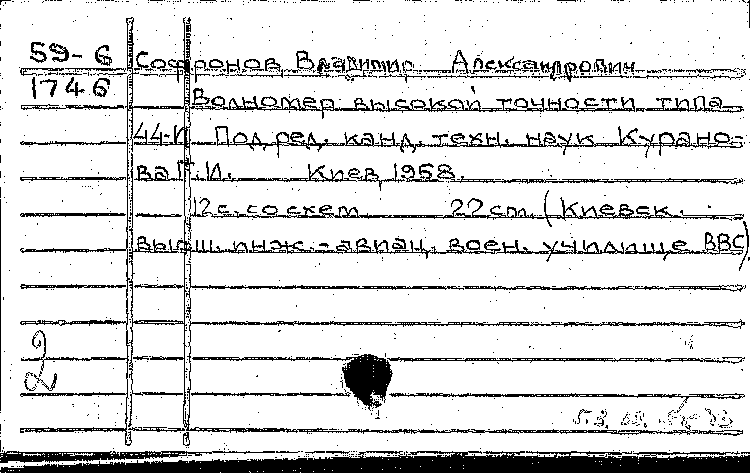 59-6 Софронов, Владимир Александрович
1746 Волномер высокой точности типа
44-И. Под ред. канд. техн. наук Курано-
ва Г.И. Киев, 1958.
12 с. со схем. 22 cm. (Киевск.
высш. инж.-авиац. воен. училище ВВС)
2